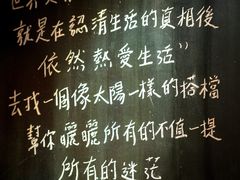 就是在認清生活的真相後
依然熱愛生活”
去找一個像太陽一樣的搭檔
幫你曬曬所有的不值一提
所有的迷茫